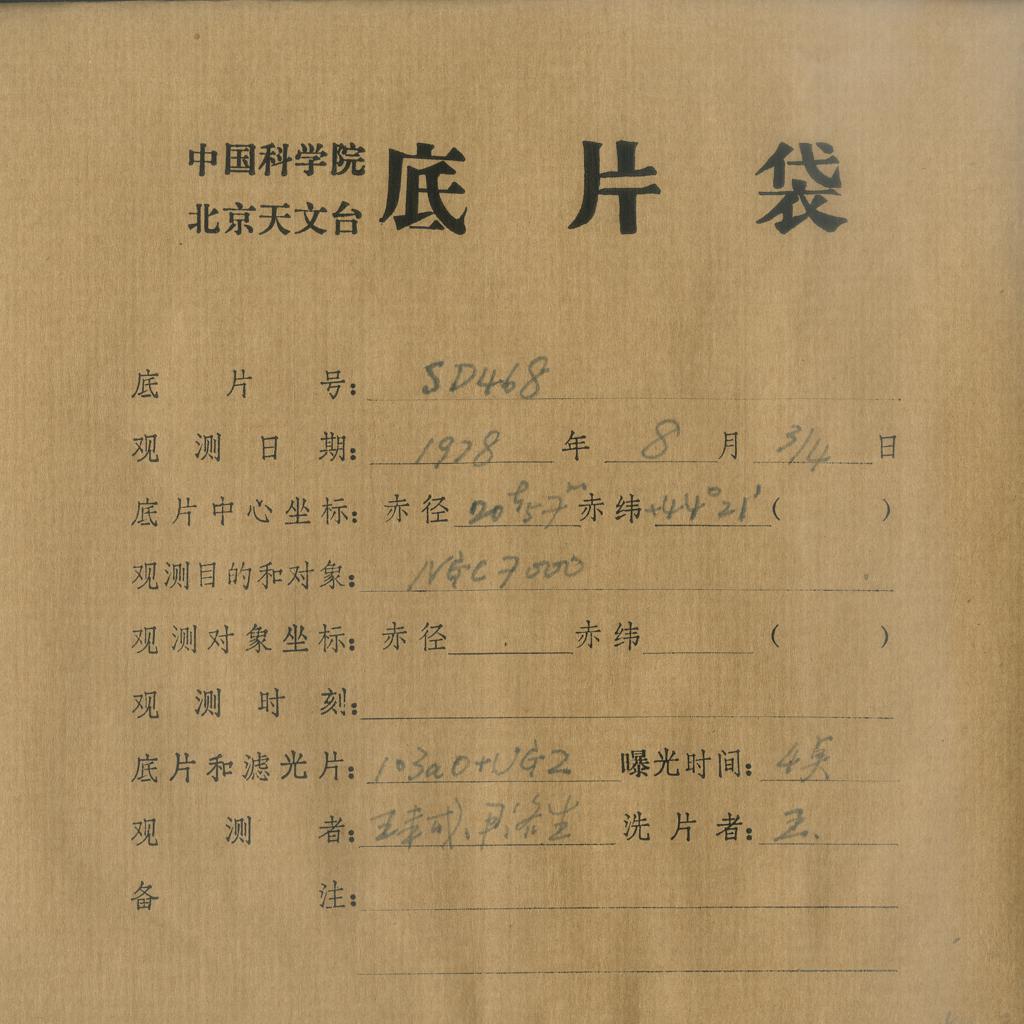 中国科学院
北京天文台 底片袋
底片号: SD468
观测日期: 1978 年 8 月 3/4 日
底片中心坐标: 赤径 20ʰ57ᵐ 赤纬 +44°21′ ( )
观测目的和对象: NGC7000
观测对象坐标: 赤径 赤纬 ( )
观测时刻:
底片和滤光片: 103aO+UG2 曝光时间: 4
观测者: 洗片者: 王.
备注: